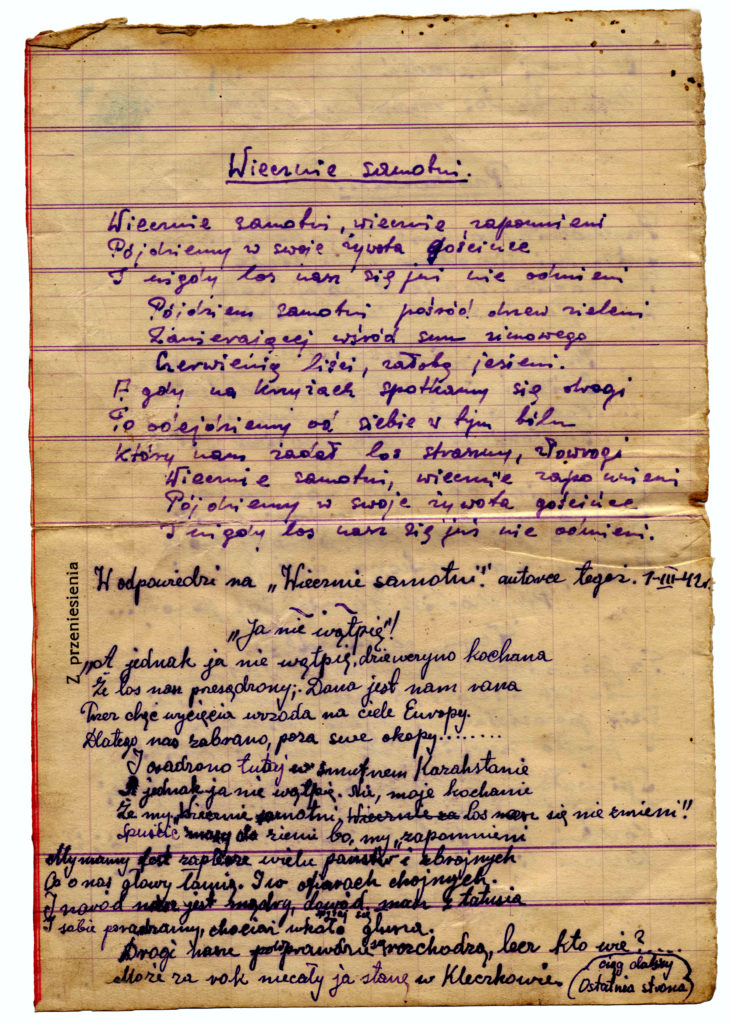 Wiecznie samotni.
Wiecznie samotni, wiecznie zapomnieni
Pójdziemy w swoje żywota gościńce
I nigdy los nasz się już nie odmieni
Pójdziem samotni pośród drzew zieleni
Zamierającej wśród snu zimowego
Czerwienią liści, żałobą jesieni.
A gdy na krzyżach spotkamy się drogi
To odejdziemy od siebie w tym bólu
Który nam zadał los straszny, złowrogi
Wiecznie samotni, wiecznie zapomnieni
Pójdziemy w swoje żywota gościńce
I nigdy los nasz się już nie odmieni.
Z przeniesienia
W odpowiedzi na „Wiecznie samotni". autorce tegoż. 1-III-42r.
„Ja nie wątpię"!
„A jednak ja nie wątpię, dzieweryno kochana
Że los nasz przesądzony; Dana jest nam rana
Przez chęć wycięcia wrzoda na ciele Europy.
Dlatego nas zabrano, poza swe okopy........
I osadzono tutaj w smutnem Kazahstanie
A jednak ja nie wątpię. Nie, moje kochanie
Że my „Wiecznie samotni, Wiecznie los nasz się nie zmieni"!
do ziemi bo, my „zapomnieni
My mamy zaplecze wielu państw i zbrojnych
Co o nas głowy łamią. I w ofiarach hojnych.
I naród nasz jest mądry, dowód mam z tatusia
I sobie poradzamy, chociaż głusza.
Drogi nasze rozchodzą, lecz kto wie?....
Może za rok niecały ja stanę w Kleczkowie.
ciąg dalszy
Ostatnia strona